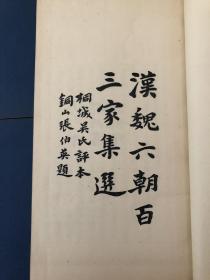 漢魏六朝百
三家集選
桐城吳氏評本
銅山張伯英題